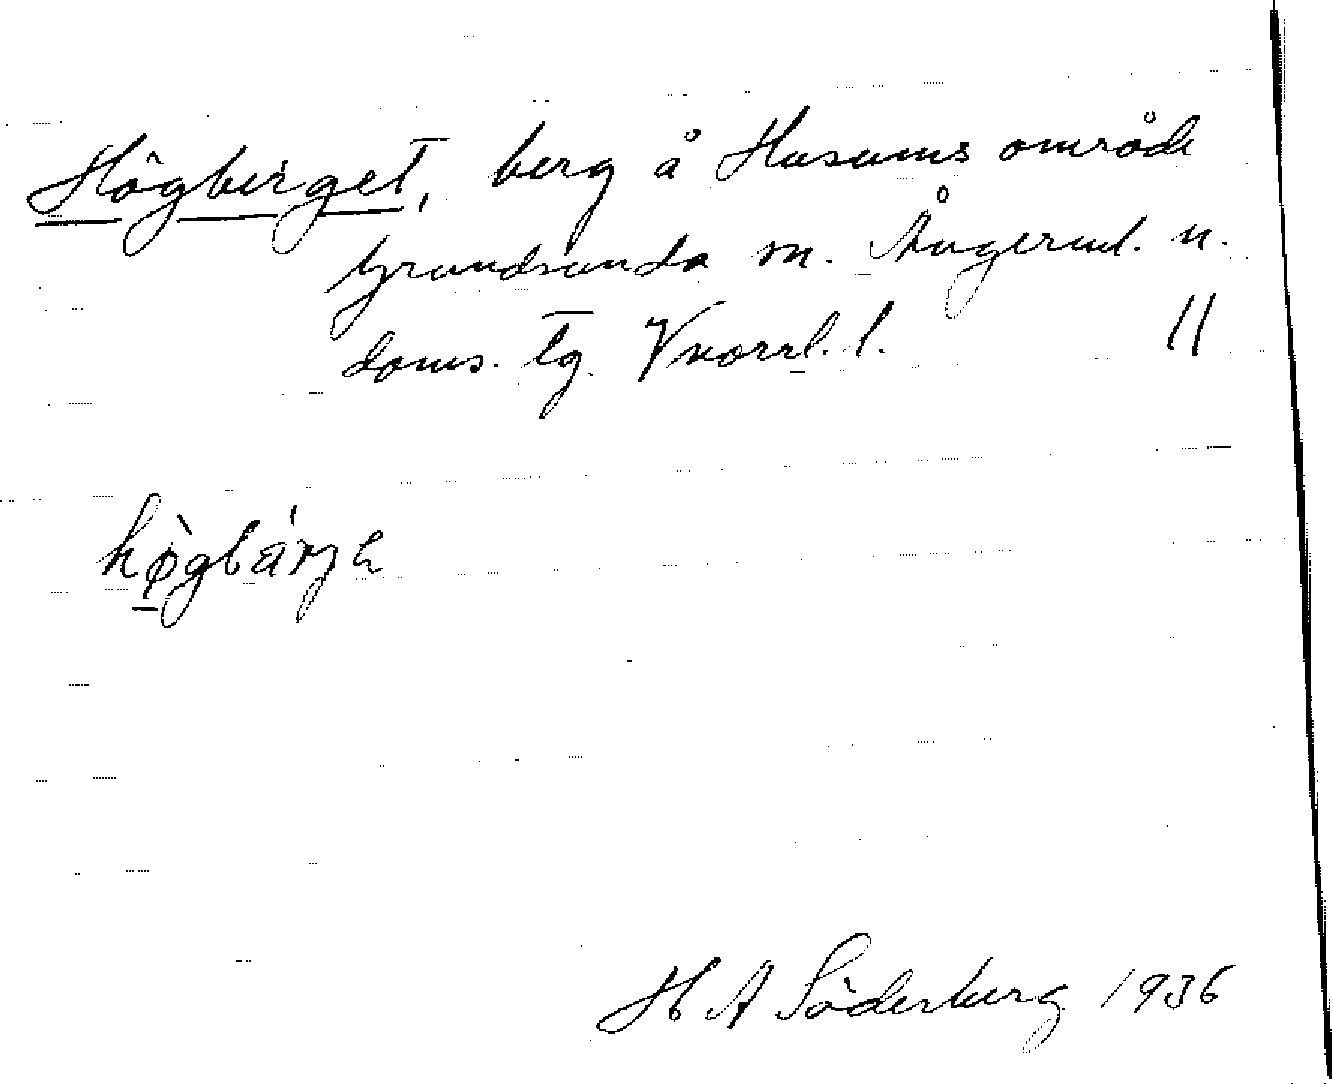 Högberget, berg å Husums område
Grundsunda sn. Ångerml. n.
doms. tg. Vnorrl. l. 11
høgbárje
H A Söderberg 1936